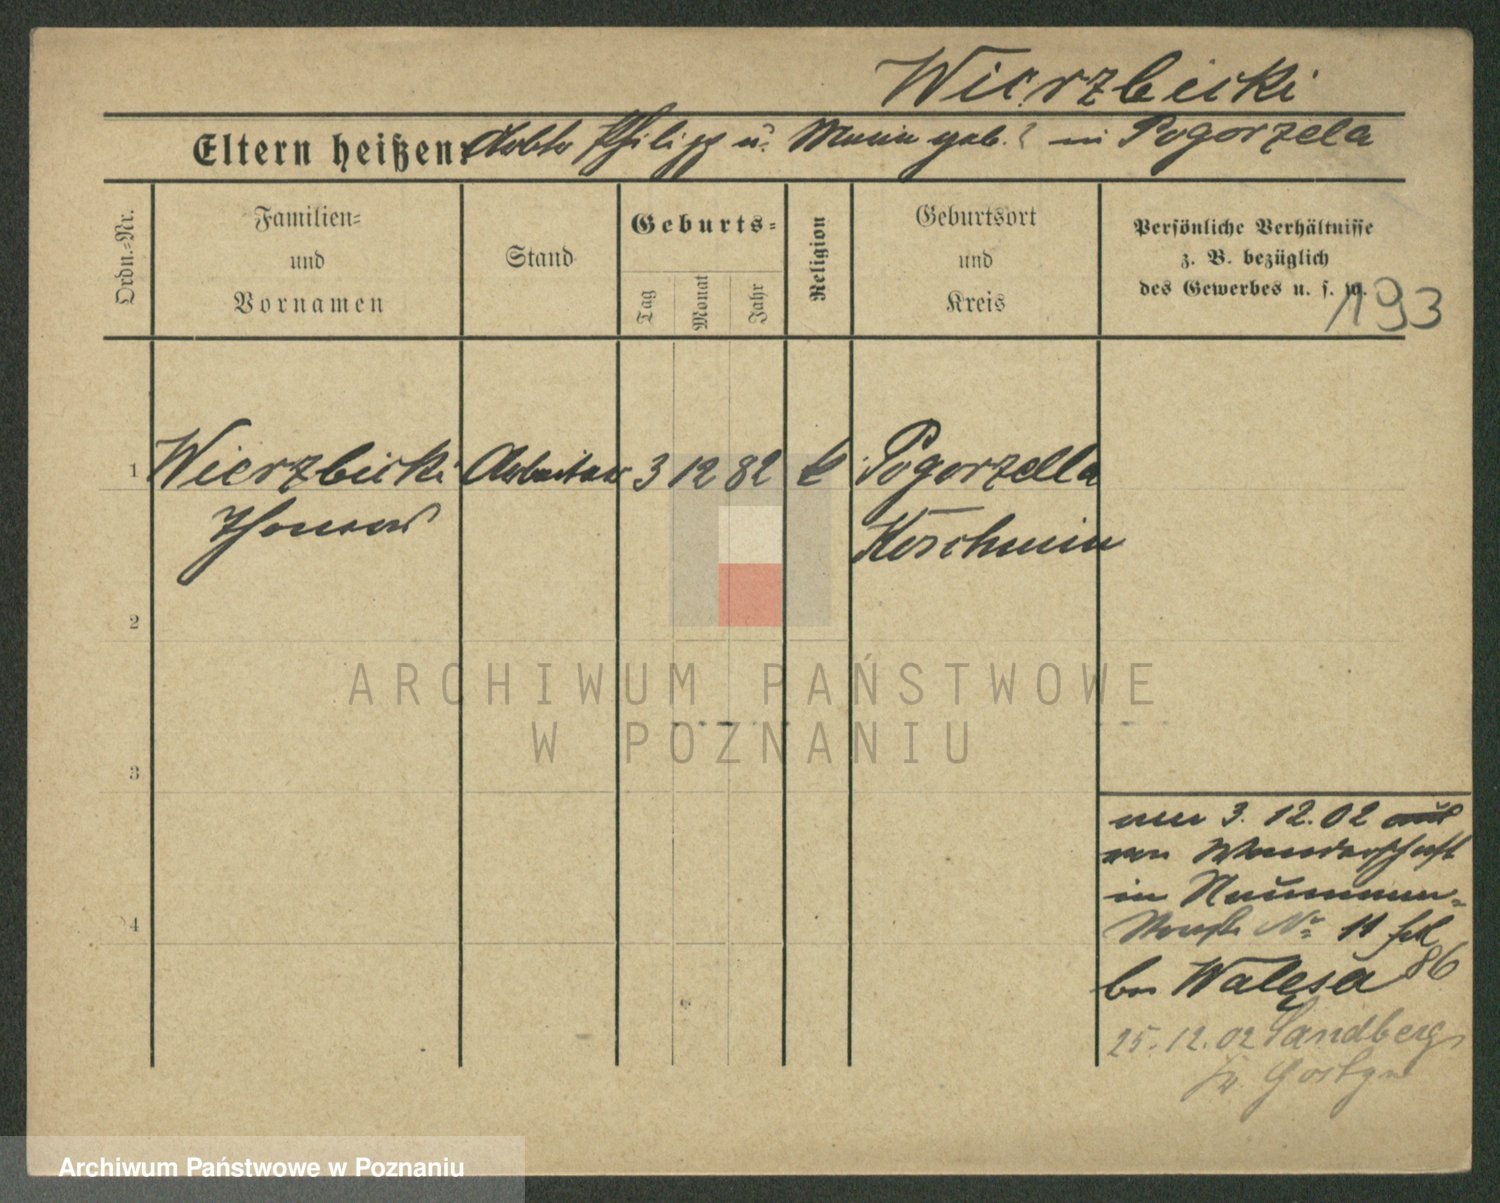 Wierzbicki
Eltern heißen: Arbtr Philipp u. Maria geb. ? in Pogorzela
Ordn.-Nr.
Familien-
und
Vornamen
Stand
Geburts-
Tag
Monat
Jahr
Religion
Geburtsort
und
Kreis
Persönliche Verhältnisse
z. B. bezüglich
des Gewerbes u. s. w.
193
1 Wierzbicki Arbeiter 3 12 82 k Pogorzella
Thomas Koschmin
2
3
4
3. 12. 02
von Wanderschaft
in Naumann-
No 11
bei Walęsa 86
25.12.02 Sandberg
Kr. Gostyn
ARCHIWUM PAŃSTWOWE
W POZNANIU
Archiwum Państwowe w Poznaniu